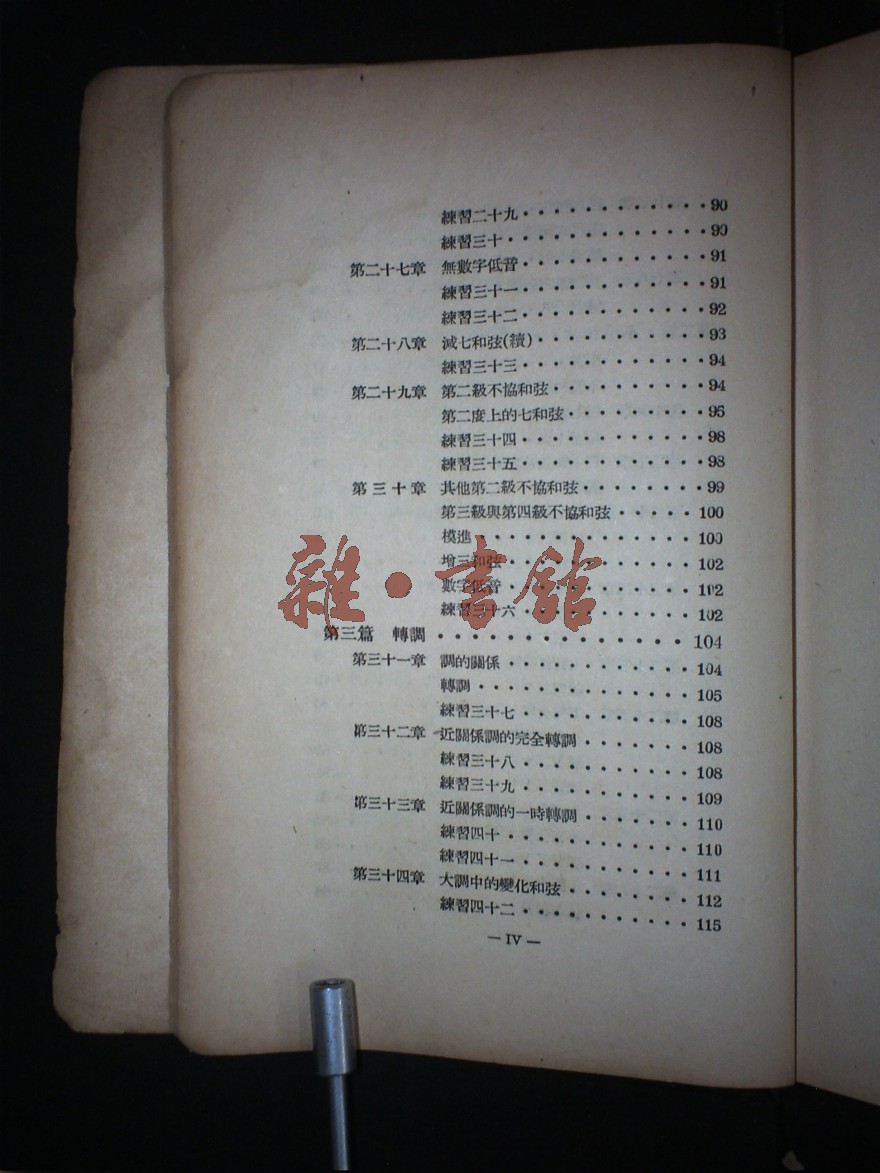 練習二十九············90
練習三十·············90
第二十七章 無數字低音············91
練習三十一············91
練習三十二············92
第二十八章 減七和弦(續)···········93
練習三十三············94
第二十九章 第二級不協和弦··········94
第二度上的七和弦·········95
練習三十四············98
練習三十五············98
第三十章 其他第二級不協和弦········99
第三級與第四級不協和弦·····100
模進··············100
增三和弦············102
數字低音············102
練習三十六···········102
第三篇 轉調·············104
第三十一章 調的關係············104
轉調··············105
練習三十七···········108
第三十二章 近關係調的完全轉調·······108
練習三十八···········108
練習三十九···········109
第三十三章 近關係調的一時轉調·······110
練習四十············110
練習四十一···········111
第三十四章 大調中的變化和弦········112
練習四十二···········115
— IV —
雜·書館